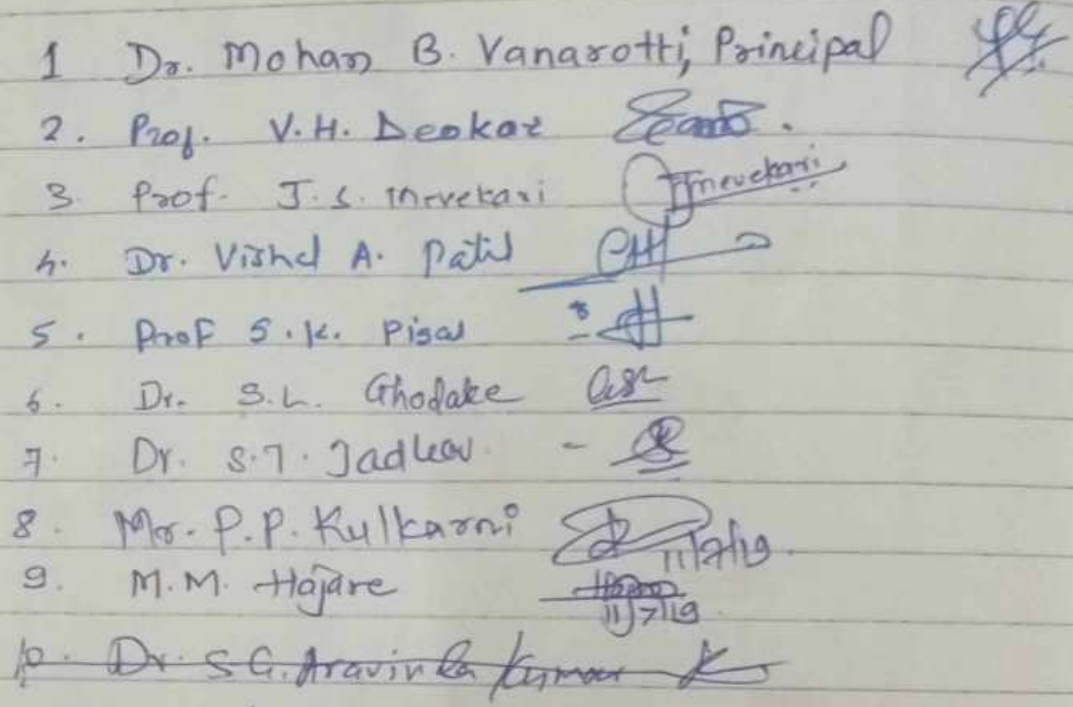 1 Dr. Mohan B. Vanarotti, Principal
2. Prof. V.H. Deokar
3. Prof. J.S. Mevekari Jmevekari
4. Dr. Vishal A. Patil
5. Prof S.K. Pisal
6. Dr. S.L. Ghodake
7. Dr. S.T. Jadhav -
8. Mr. P.P. Kulkarni 11/7/19.
9. M.M. Hajare 11/7/19
10. Dr. S G. Aravinda Kumar